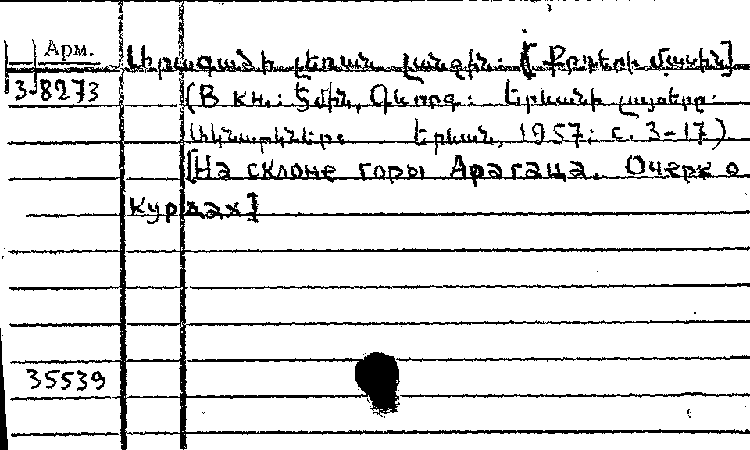 Арм.
Արագածի լեռան լանջին. [Քրդերի մասին]
3-8273
(В кн.: Էմին, Գևորգ. Երևանի լույսերը.
Ակնարկներ. Երևան, 1957; с. 3-17)
[На склоне горы Арагаца. Очерк о
курдах]
35539